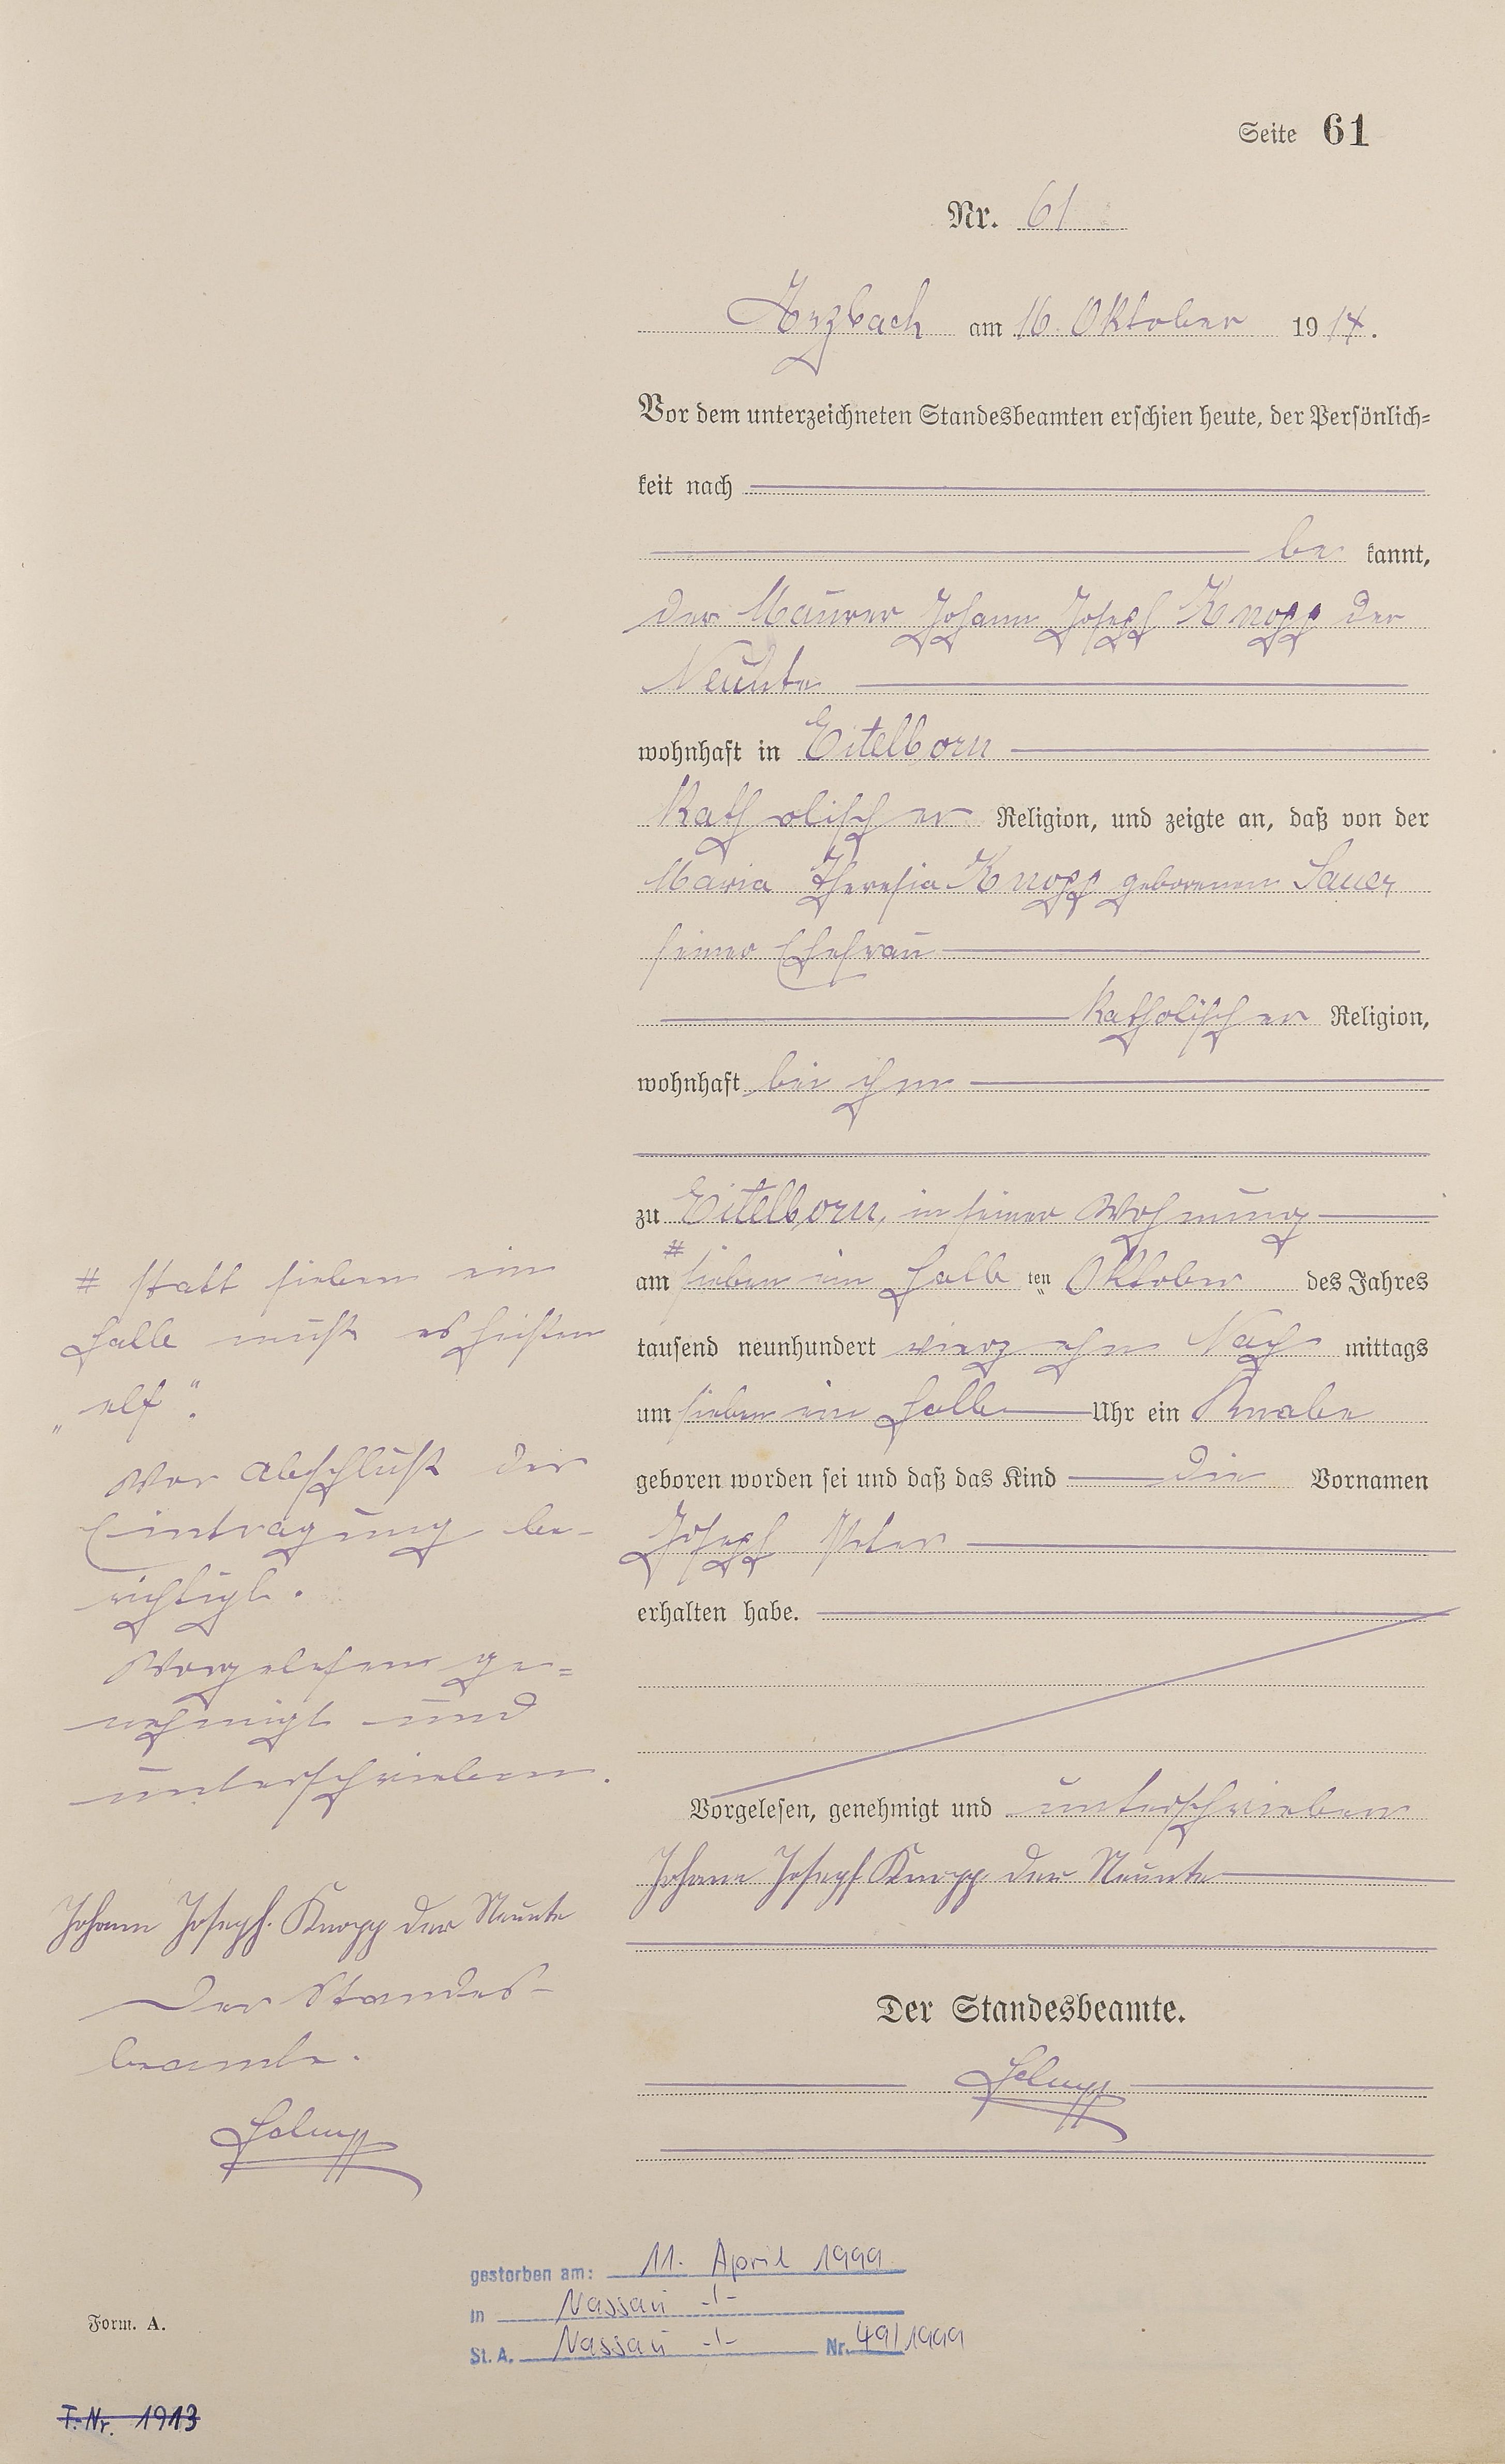 Seite 61
Nr. 61
Arzbach am 16. Oktober 1914.
Vor dem unterzeichneten Standesbeamten erschien heute, der Persönlich-
keit nach
be kannt,
der Maurer Johann Joseph Knopp der
Neunte
wohnhaft in Eitelborn
katholischer Religion, und zeigte an, daß von der
Maria Theresia Knopp geborenen Sauer
seiner Ehefrau
katholischer Religion,
wohnhaft bei ihm
zu Eitelborn, in seiner Wohnung
am # sieben ein halb ten Oktober des Jahres
tausend neunhundert vierzehn Nach mittags
um sieben ein halb Uhr ein Knabe
geboren worden sei und daß das Kind die Vornamen
Joseph Peter
erhalten habe.
Vorgelesen, genehmigt und unterschrieben
Johann Joseph Knopp der Neunte
Der Standesbeamte.
# statt sieben ein
halb muß es heißen
„elf“.
Vor Abschluß der
Eintragung be-
richtigt.
Vorgelesen ge=
nehmigt und
unterschrieben.
Johann Joseph Knopp der Neunte
Der Standes-
beamte.
gestorben am: 11. April 1999
in Nassau -/-
St. A. Nassau -/- Nr. 49/1999
Form. A.
T.-Nr. 1913